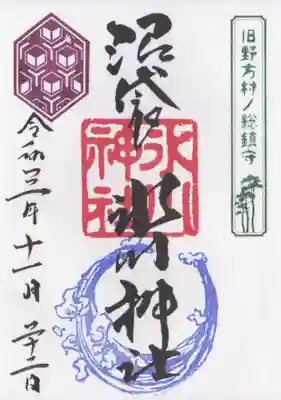 旧野方村ノ総鎮守
沼袋 氷川神社
氷川神社
令和三年十一月二十二日